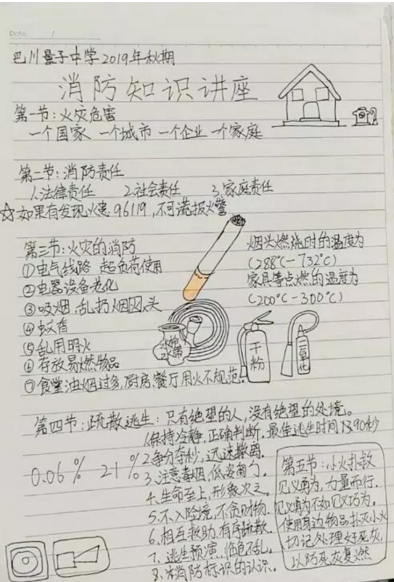 Date. /
巴川量子中学2019年秋期
消防知识讲座
第一节:火灾危害
一个国家 一个城市 一个企业 一个家庭
第二节:消防责任
1.法律责任 2.社会责任 3.家庭责任
☆如果有发现火患96119,不可谎报火警
第三节:火灾的消防
①电气线路 超负荷使用
②电器设备老化
③吸烟 乱扔烟头
④蚊香
⑤乱用明火
⑥存放易燃物品
⑦食堂油烟过多,厨房,餐厅用火不规范.
烟头燃烧时的温度为
(288℃-732℃)
家具等点燃的温度为
(200℃-300℃)
干粉
第四节:疏散逃生:只有绝望的人,没有绝望的处境。
1.保持冷静,正确判断.最佳逃生时间 90秒
2.争分夺秒,迅速撤离.
3.注意毒烟,低姿
4.生命至上,形象次之.
5.不入险境,不贪财物.
6.相互救助,有序疏散.
7.逃生预演,临危不乱.
8.消防标识的认识.
0.06% 21%
第五节:小火扑救
见义勇为,力量而行.
见义勇为不如见义巧为.
使用身边物品扑灭小火
切记处理好死灰,
以防死灰复燃